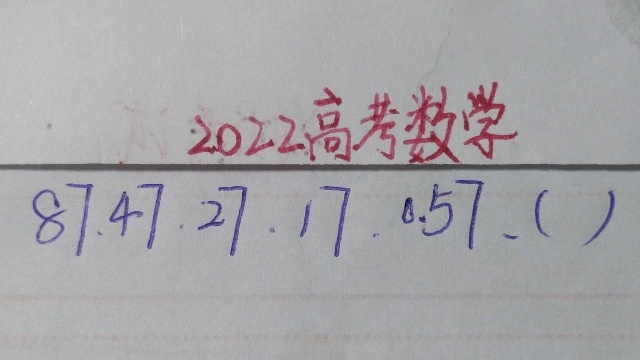 2022高考数学
87.47.27.17.0.57.( )